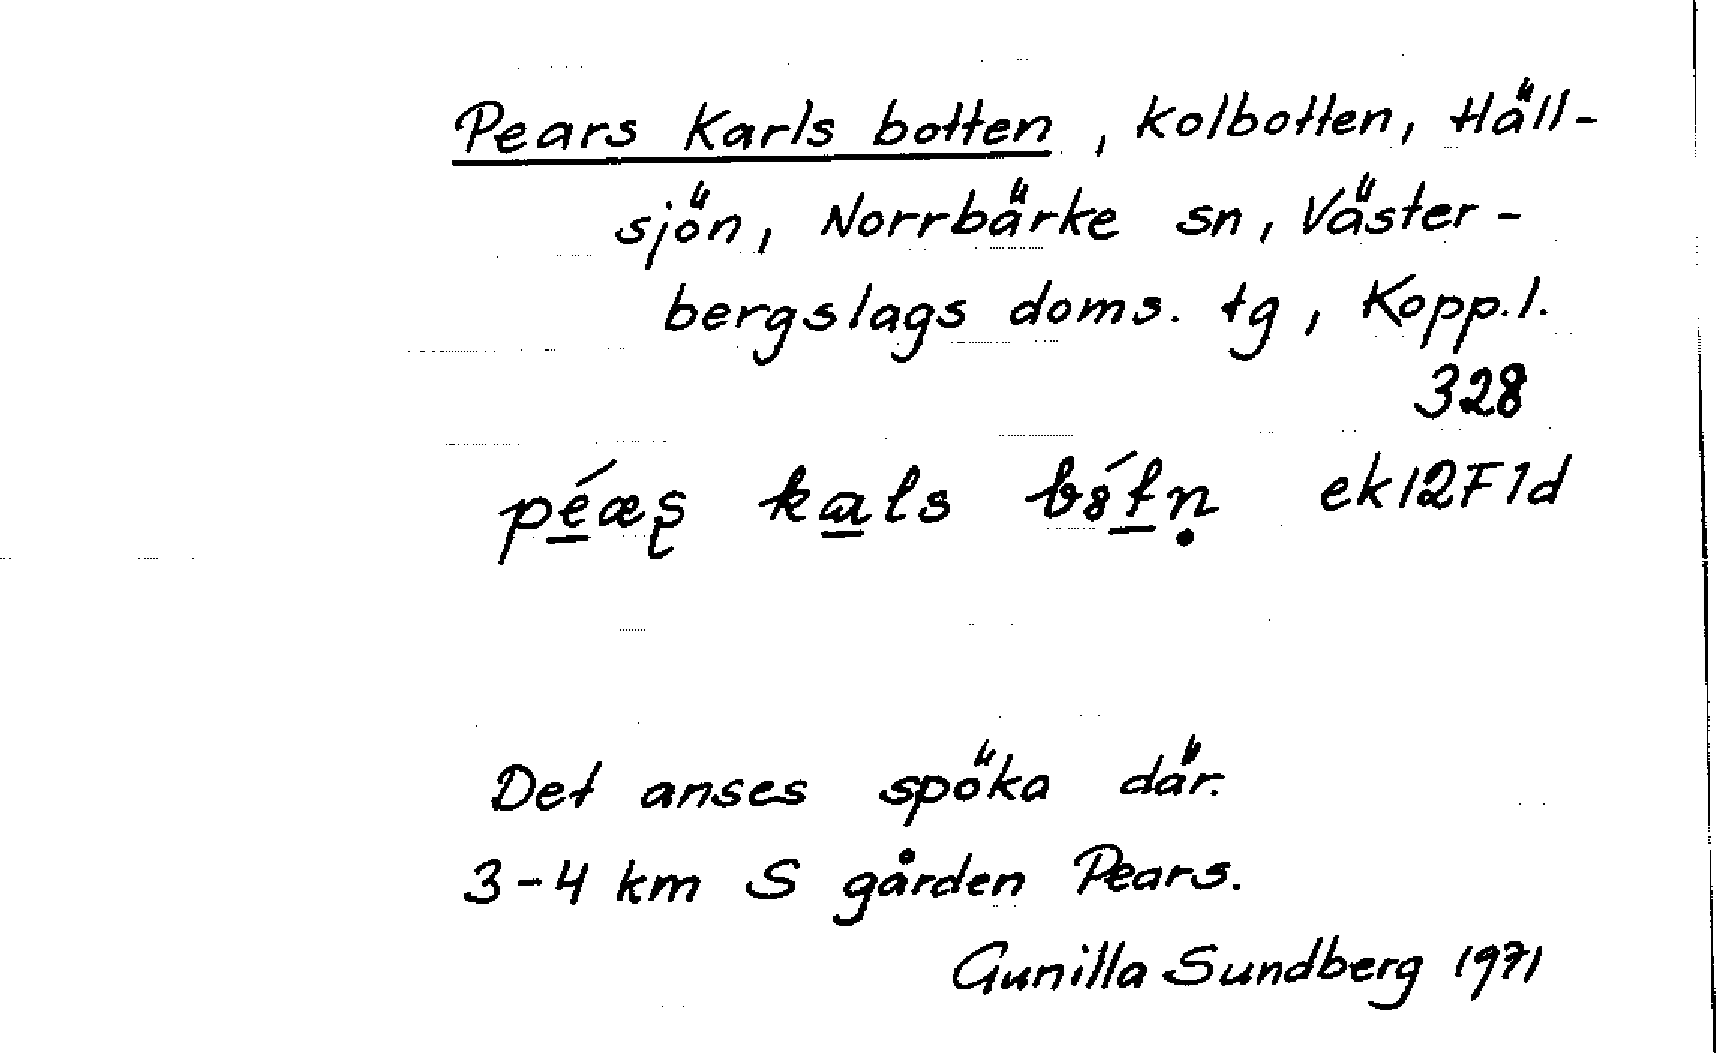 Pears Karls botten, kolbotten, Häll-
sjön, Norrbärke sn, Väster-
bergslags doms. tg, Kopp.l.
328
ek12F1d
Det anses spöka där.
3-4 km S gården Pears.
Gunilla Sundberg 1971